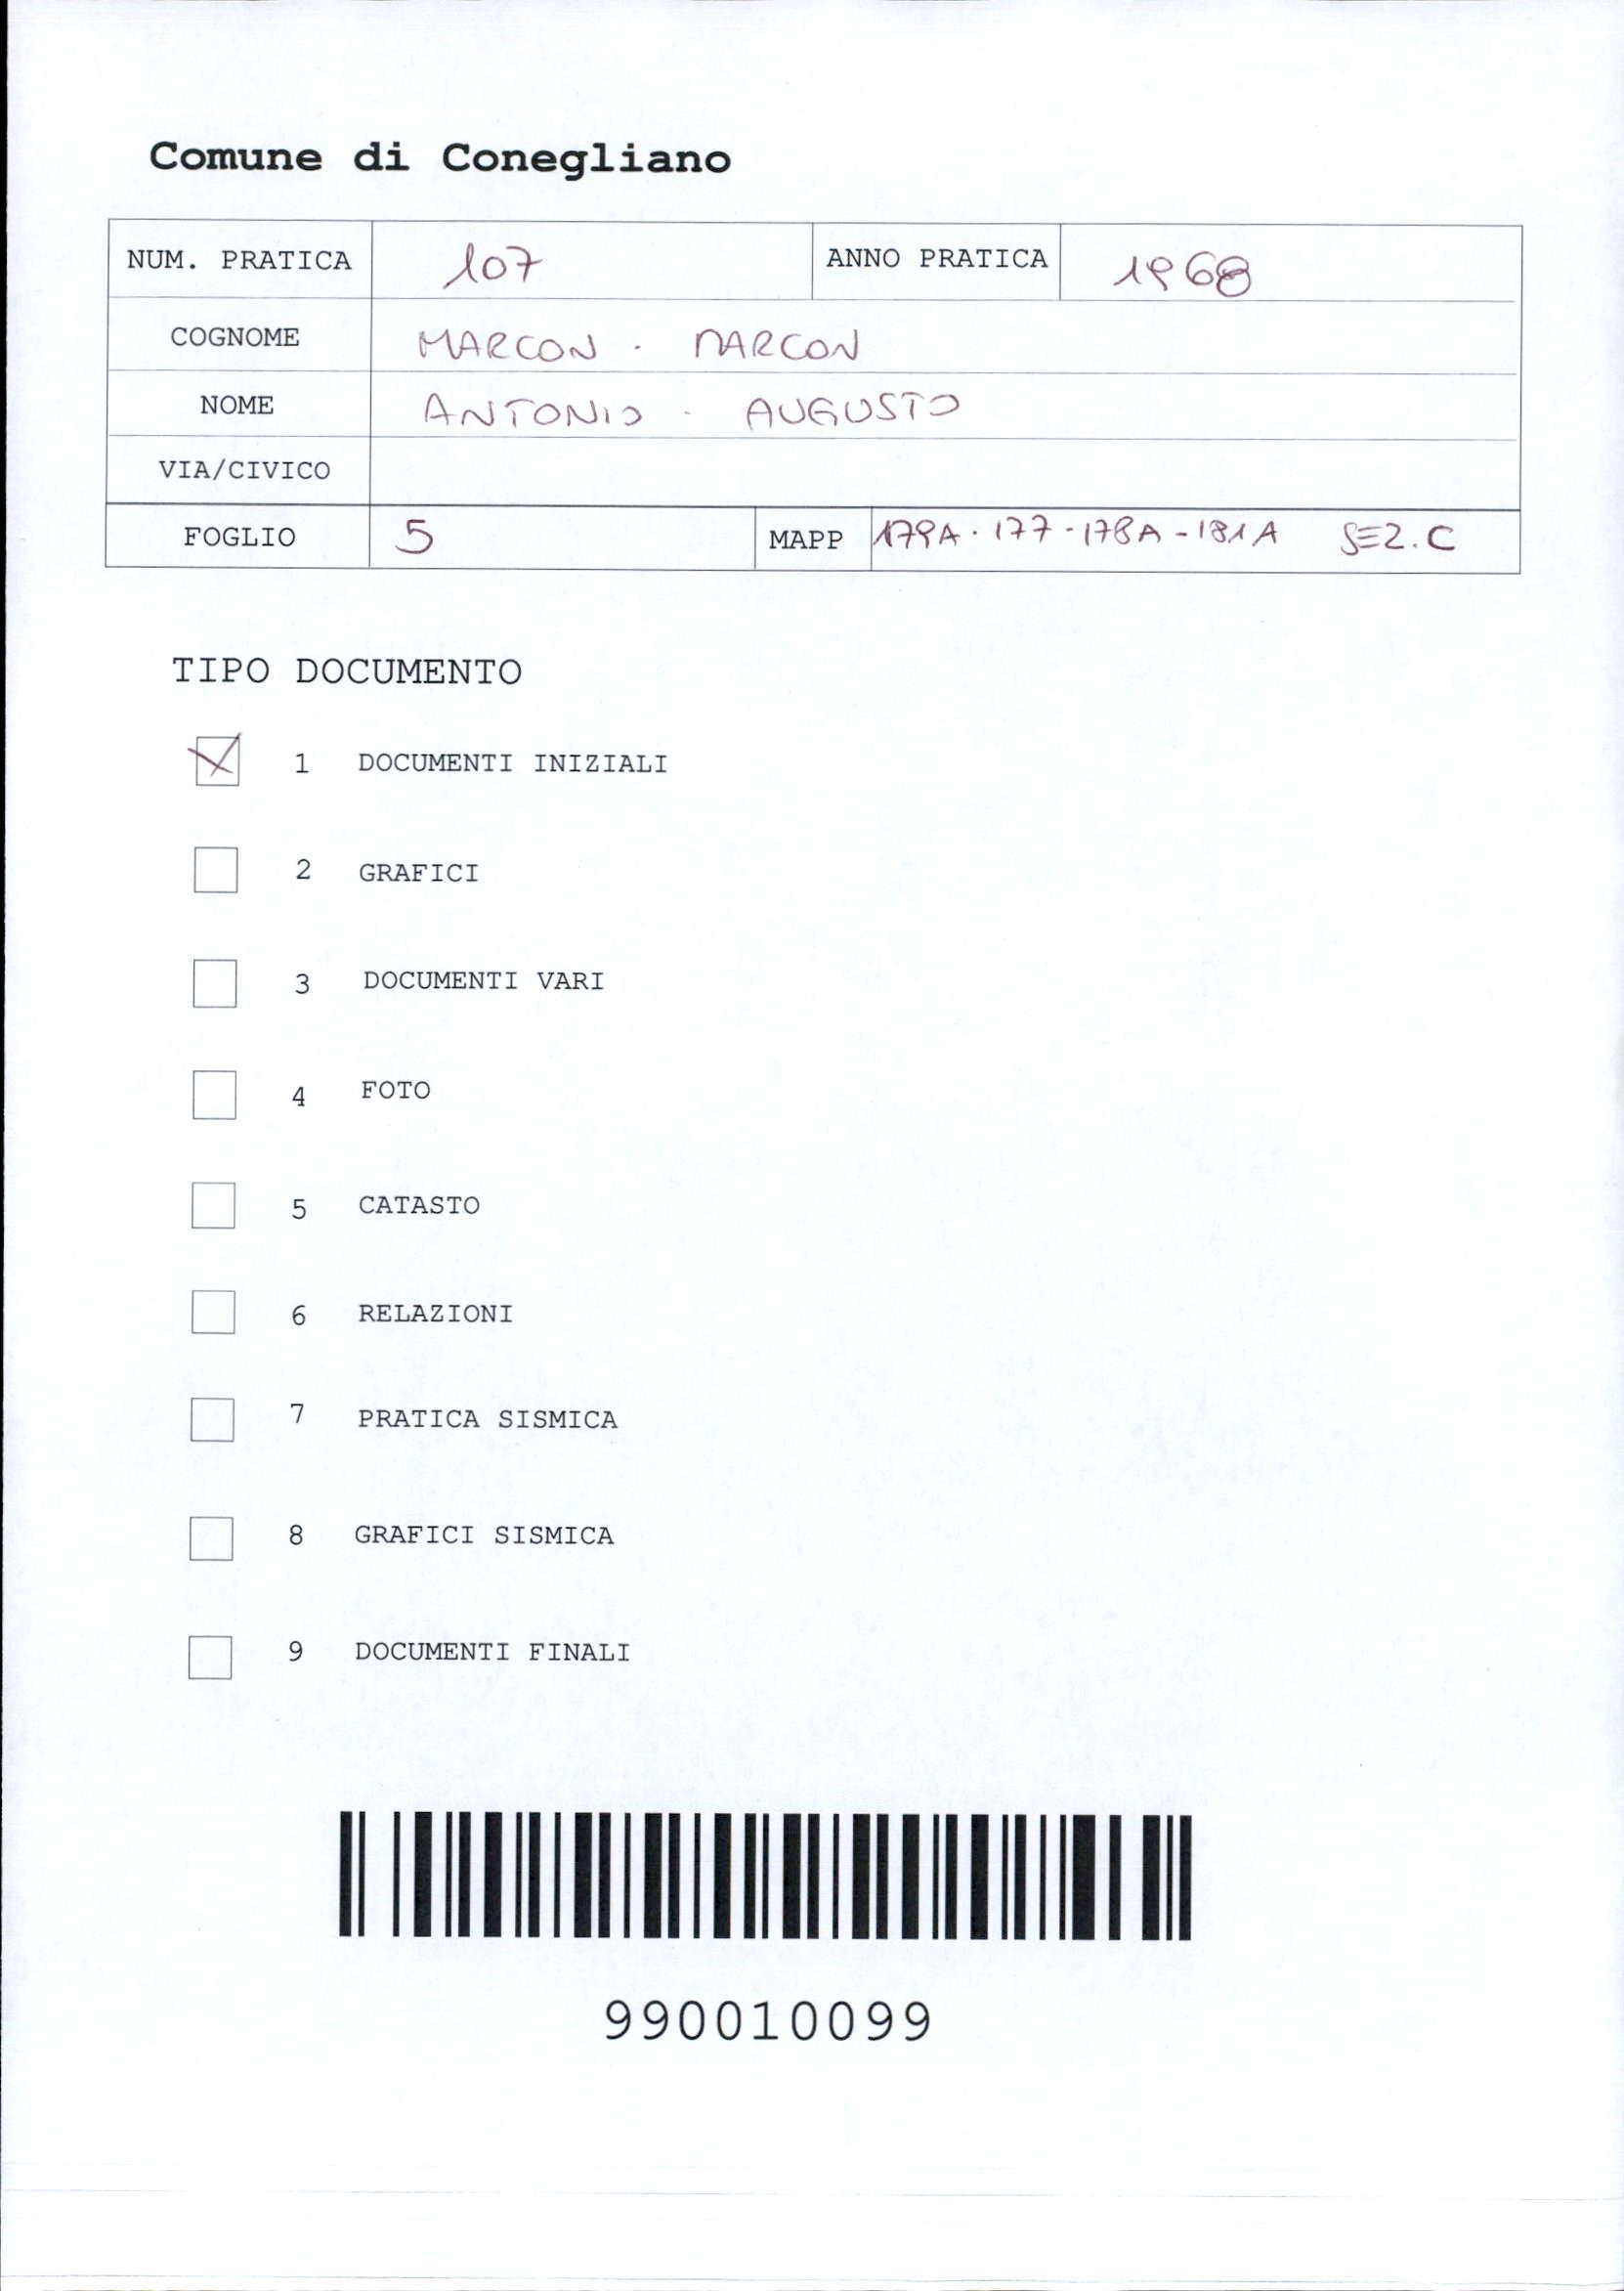 Comune di Conegliano
NUM. PRATICA 107 ANNO PRATICA 1968
COGNOME MARCON - MARCON
NOME ANTONIO - AUGUSTO
VIA/CIVICO
FOGLIO 5 MAPP 179A - 177 - 178A - 181A SEZ. C
TIPO DOCUMENTO
1 DOCUMENTI INIZIALI
2 GRAFICI
3 DOCUMENTI VARI
4 FOTO
5 CATASTO
6 RELAZIONI
7 PRATICA SISMICA
8 GRAFICI SISMICA
9 DOCUMENTI FINALI
990010099